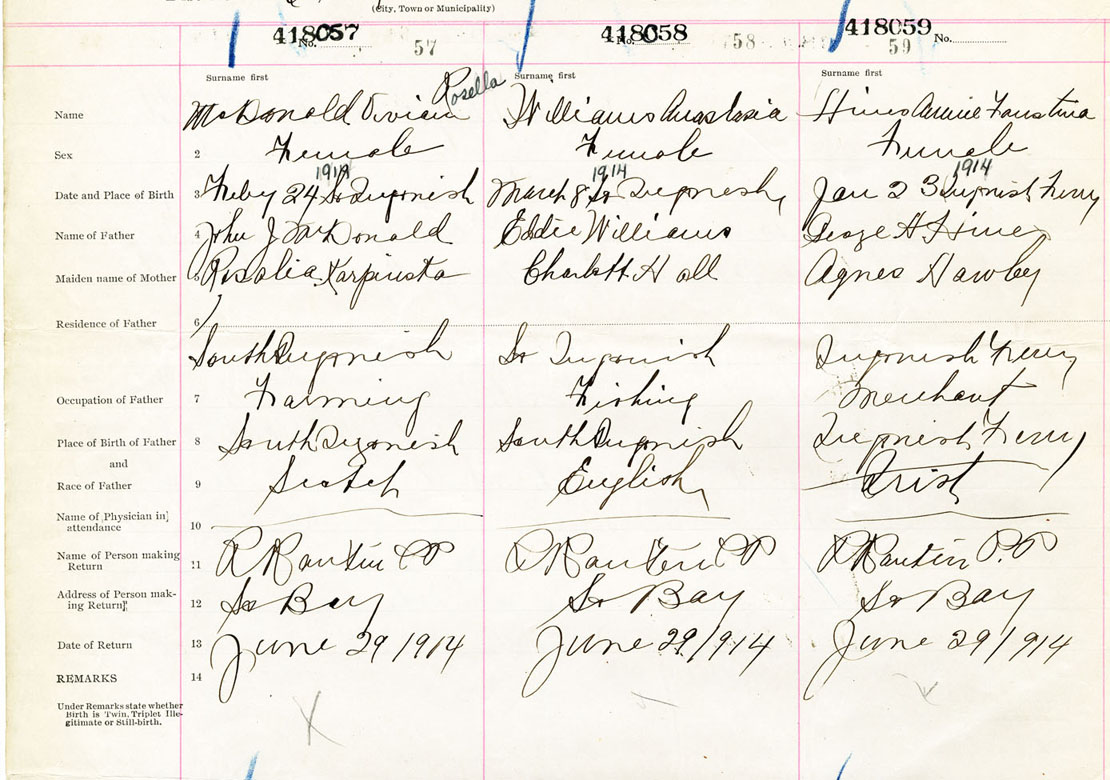 (City, Town or Municipality)
418057 No. 57
418058 No. 58
418059 59 No.
Surname first
Surname first
Surname first
Rosella
Name
McDonald Vivian
Williams Anastasia
Hines Annie Faustina
Sex 2
Female
Female
Female
1914
1914
1914
Date and Place of Birth 3
Feby 24 So Ingonish
March 8 So Ingonish
Jan 23 Ingonish Ferry
Name of Father 4
John J McDonald
Eddie Williams
George H Hines
Maiden name of Mother 5
Rosalia
Charlott Hall
Agnes Hawley
Residence of Father 6
South Ingonish
So Ingonish
Ingonish Ferry
Occupation of Father 7
Farming
Fishing
Merchant
Place of Birth of Father 8
South Ingonish
South Ingonish
Ingonish Ferry
and
Race of Father 9
Scotch
English
Irish
Name of Physician in
attendance 10
Name of Person making
Return 11
R Rankin PP
R Rankin PP
R Rankin P.P
Address of Person mak-
ing Return 12
So Bay
So Bay
So Bay
Date of Return 13
June 29 1914
June 29/914
June 29/914
REMARKS 14
Under Remarks state whether
Birth is Twin, Triplet Ille-
gitimate or Still-birth.